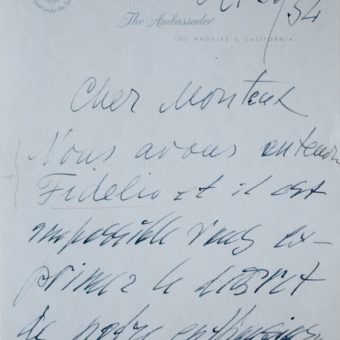 /54
The Ambassador
LOS ANGELES 5, CALIFORNIA
Cher Monteux
Nous avons entendu
Fidelio et il est
impossible vous ex-
primer le
de notre